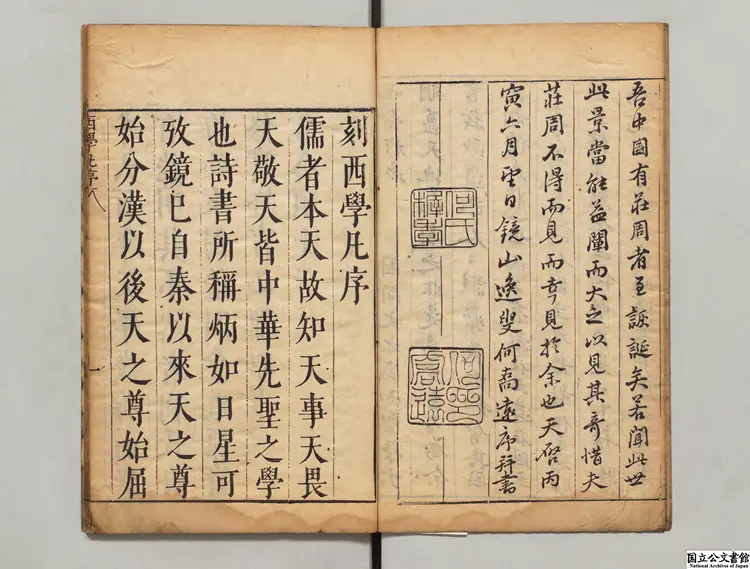 吾中國有莊周者至詼誕矣若聞此世
此景當能益闡而大之以見其奇惜夫
莊周不得而見而幸見於余也天啓丙
寅六月望日鏡山逸叟何喬遠序并書
刻西學凡序
儒者本天故知天事天畏
天敬天皆中華先聖之學
也詩書所稱炳如日星可
攷鏡已自秦以來天之尊
始分漢以後天之尊始屈
西學凡序
一
国立公文書館
National Archives of Japan